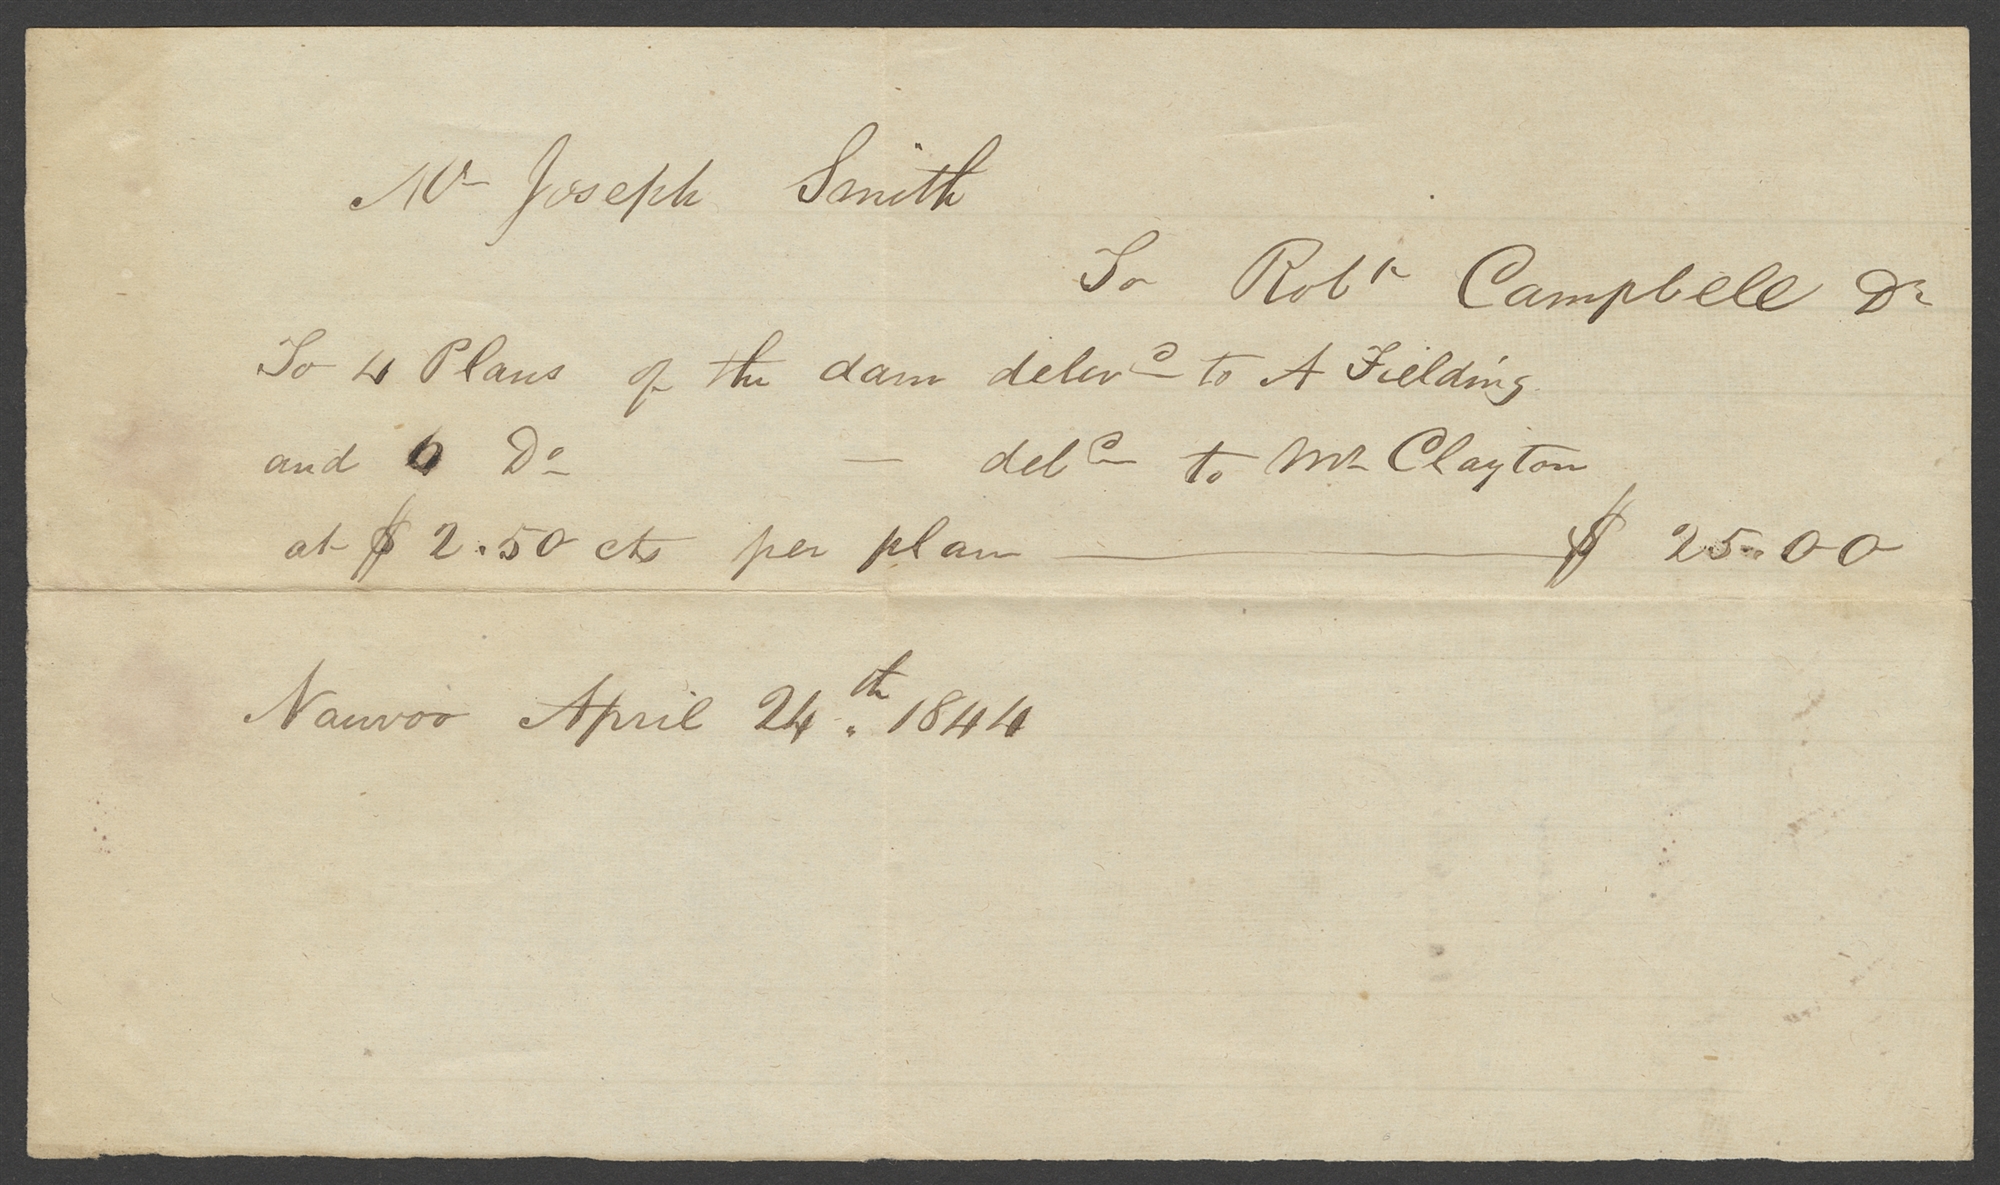 Mr Joseph Smith
To Robt Campbell Dr
To 4 Plans of the dam delivd to A Fielding
and 6 Do — deld to Mr Clayton
at $2.50 cts per plan — $ 25.00
Nauvoo April 24th 1844